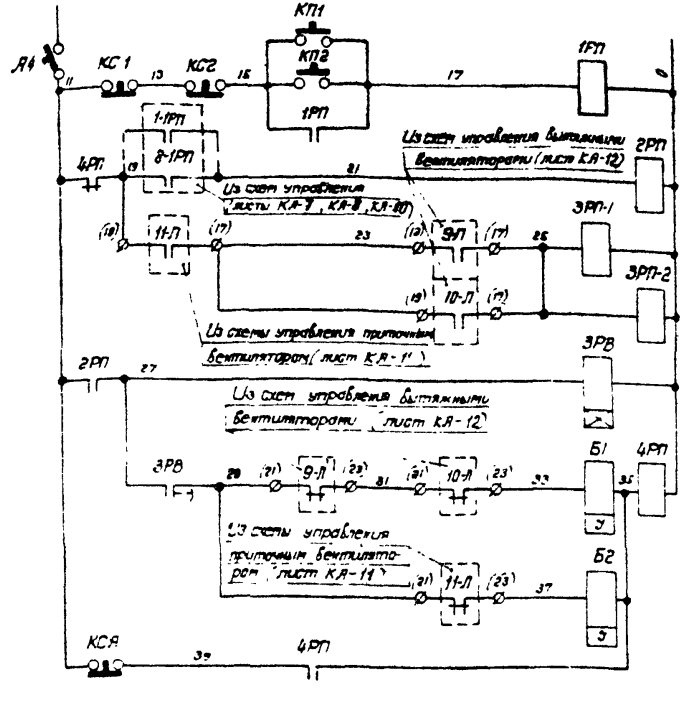 КП1
А1
КС1
КС2
КП2
1РП
11
13
15
17
0
1РП
1-1РП
2-1РП
4РП
19
21
2РП
Из схем управления вытяжными
вентиляторами (лист КА-12)
Из схем управления
(листы КА-7, КА-8, КА-80
(19)
11-Л
(17)
23
(19)
9-Л
(17)
25
3РП-1
(19)
10-Л
(17)
3РП-2
Из схемы управления приточным
вентилятором (лист КА-11)
2РП
27
3РВ
Из схем управления вытяжными
вентиляторами (лист КА-12)
3РВ
29
(21)
9-Л
(23)
31
(21)
10-Л
(23)
33
Б1
У
35
4РП
Из схемы управления
приточным вентилято-
ром (лист КА-11)
(21)
11-Л
(23)
37
Б2
У
КСЯ
39
4РП